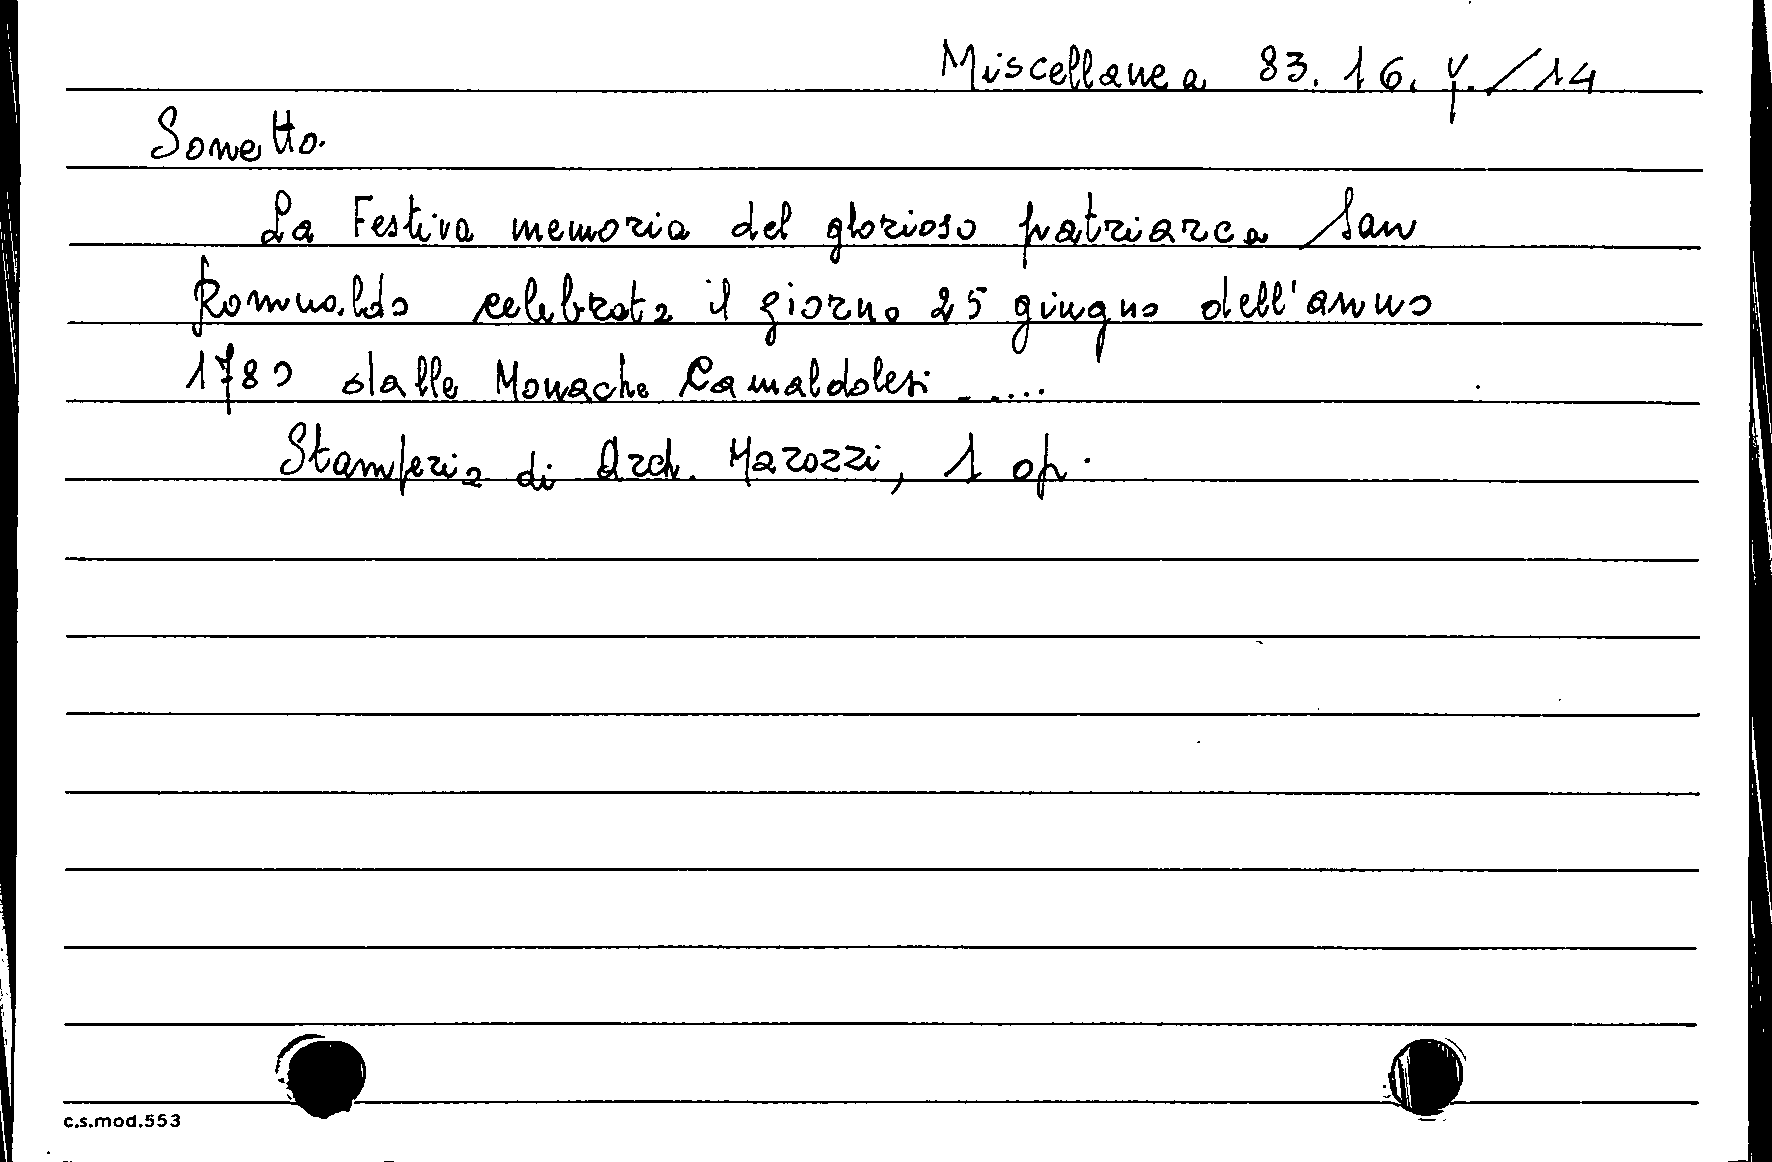 Miscellanea 83. 16. Y./14
Sonetto.
La Festiva memoria del glorioso patriarca San
Romualdo celebrata il giorno 25 giugno dell'anno
1780 dalle Monache Camaldolesi .....
Stamperia di Arch. Marozzi, 1 op.
c.s.mod.553